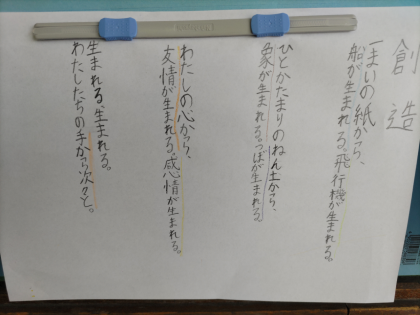 創造
一まいの紙から、
船が生まれる。飛行機が生まれる。
ひとかたまりのねん土から、
象が生まれる。つぼが生まれる。
わたしの心から、
友情が生まれる。感情が生まれる。
生まれる、生まれる。
わたしたちの手から次々と。